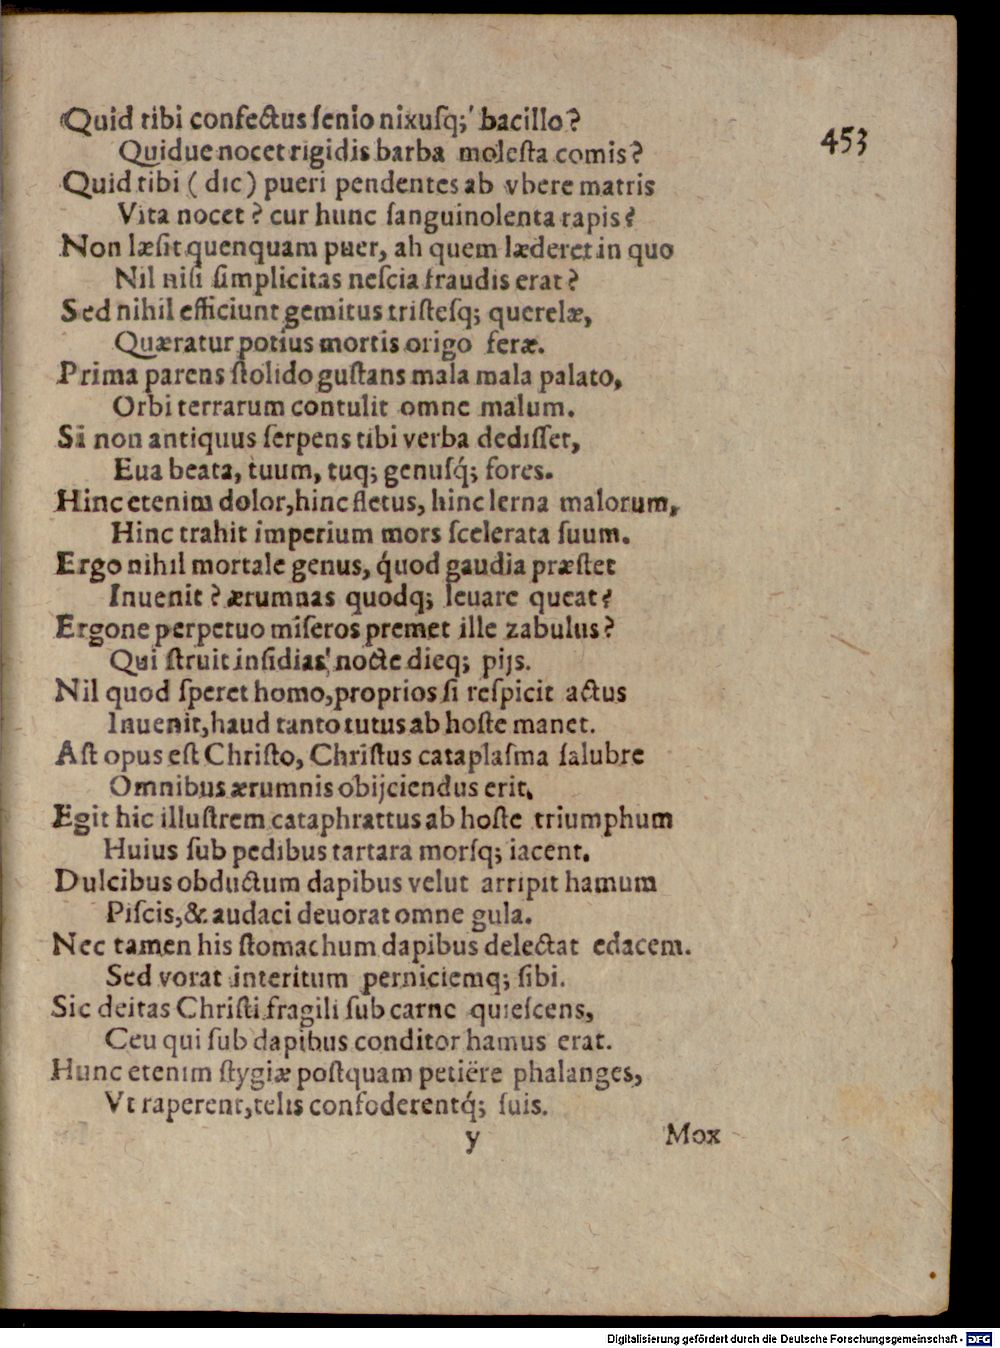 Quid tibi confectus ſenio nixuſq;' bacillo?
Quidue nocet rigidis barba moleſta comis?
453
Quid tibi ( dic ) pueri pendentes ab vbere matris
Vita nocet? cur hunc ſanguinolenta rapis?
Non læſit quenquam puer, ah quem læderet in quo
Nil niſi ſimplicitas neſcia fraudis erat?
Sed nihil efficiunt gemitus triſteſq; querelæ,
Quæratur potius mortis origo feræ.
Prima parens ſtolido guſtans mala mala palato,
Orbi terrarum contulit omne malum.
Si non antiquus ſerpens tibi verba dediſſet,
Eua beata, tuum, tuq; genuſq́; fores.
Hinc etenim dolor, hinc fletus, hinc lerna malorum,
Hinc trahit imperium mors ſcelerata ſuum.
Ergo nihil mortale genus, q́uod gaudia præſtet
Inuenit? ærumnas quodq; leuare queat?
Ergone perpetuo miſeros premet ille zabulus?
Qui ſtruit inſidias' nocte dieq; pijs.
Nil quod ſperet homo, proprios ſi reſpicit actus
Inuenit, haud tanto tutus ab hoſte manet.
Aſt opus eſt Chriſto, Chriſtus cataplaſma ſalubre
Omnibus ærumnis obijciendus erit.
Egit hic illuſtrem cataphrattus ab hoſte triumphum
Huius ſub pedibus tartara morſq; iacent.
Dulcibus obductum dapibus velut arripit hamum
Piſcis, & audaci deuorat omne gula.
Nec tamen his ſtomachum dapibus delectat edacem.
Sed vorat interitum perniciemq; ſibi.
Sic deitas Chriſti fragili ſub carne quieſcens,
Ceu qui ſub dapibus conditor hamus erat.
Hunc etenim ſtygiæ poſtquam petiëre phalanges,
Vt raperent, telis confoderentq́; ſuis.
y Mox
Digitalisierung gefördert durch die Deutsche Forschungsgemeinschaft - DFG